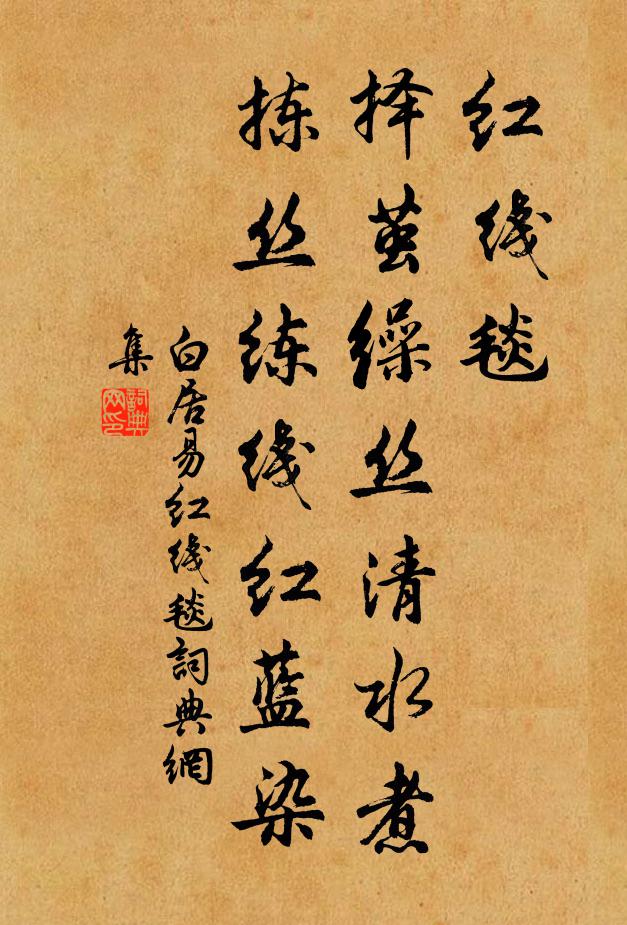 红线毯
择茧缲丝清水煮
拣丝练线红蓝染
白居易红线毯詞典網
集
詞典
网印